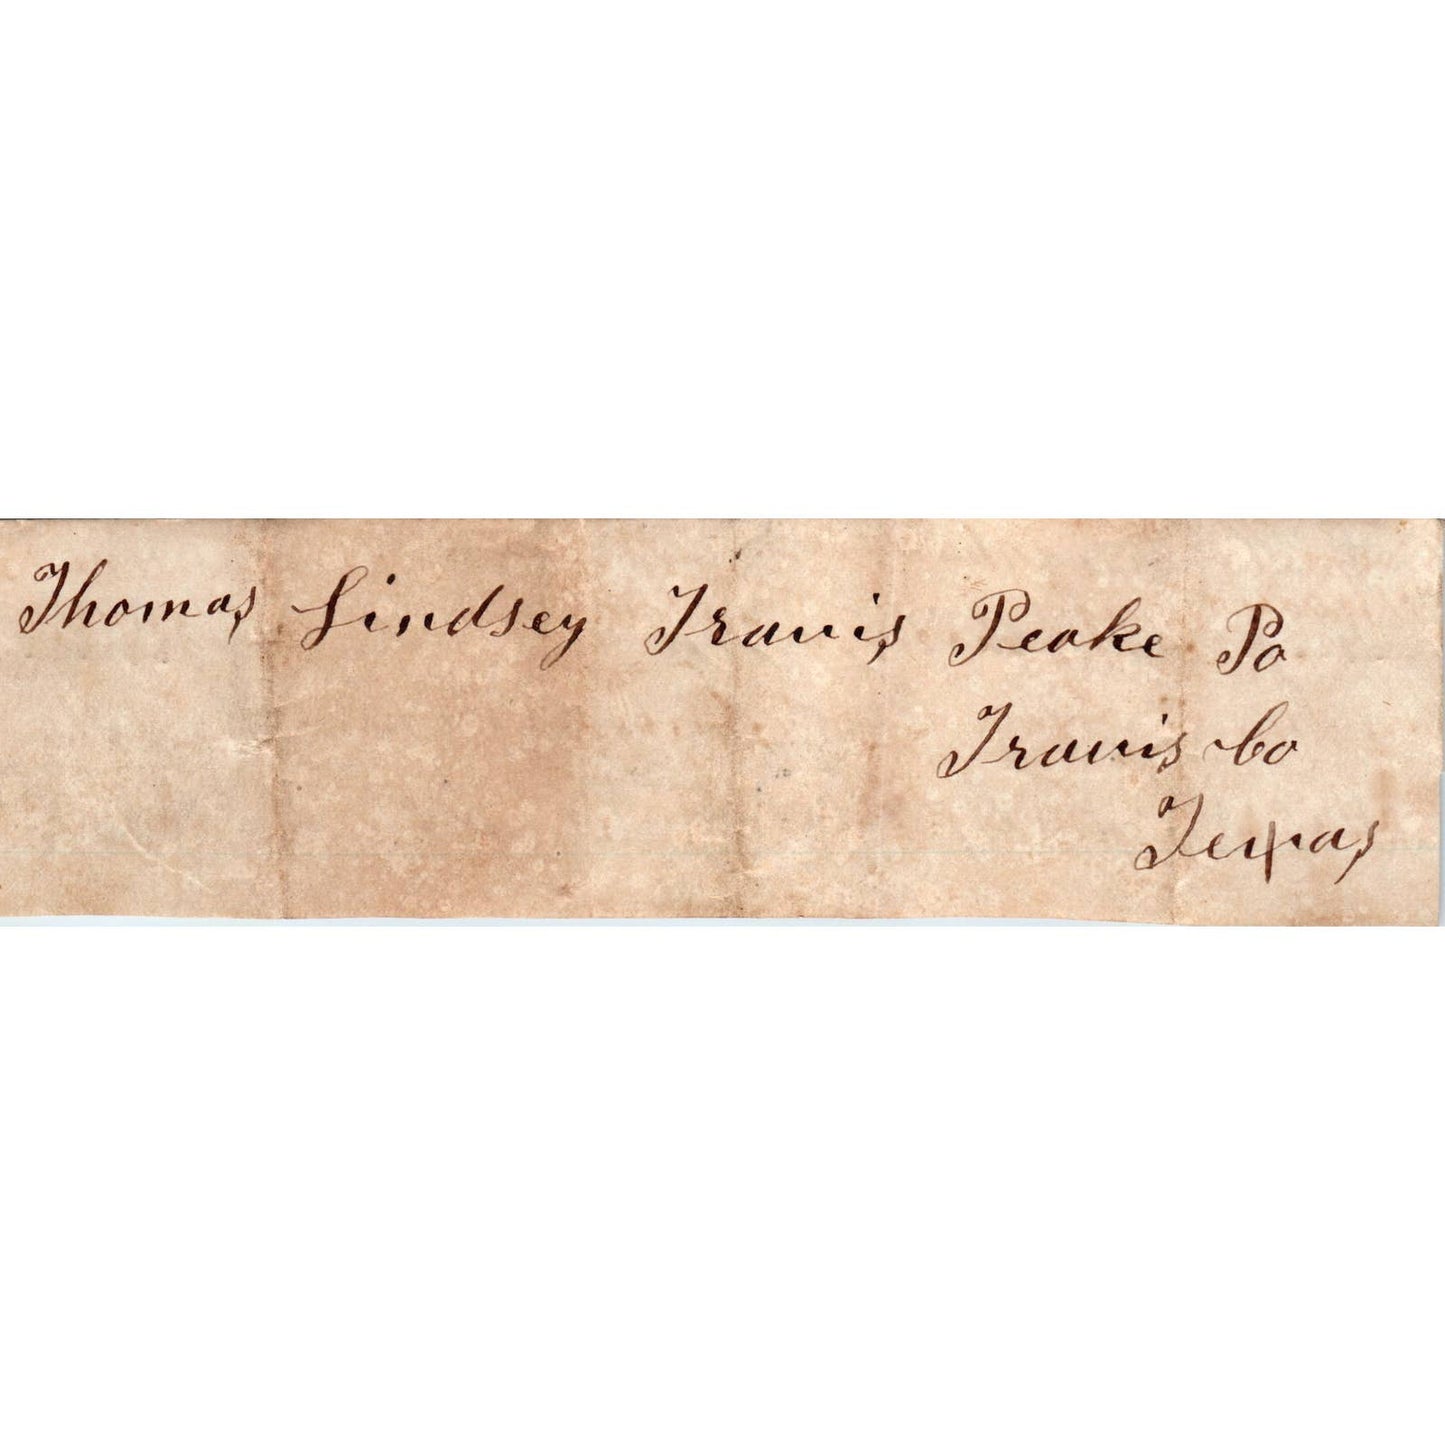 Thomas Lindsey Travis Peake Po
Travis Co
Texas